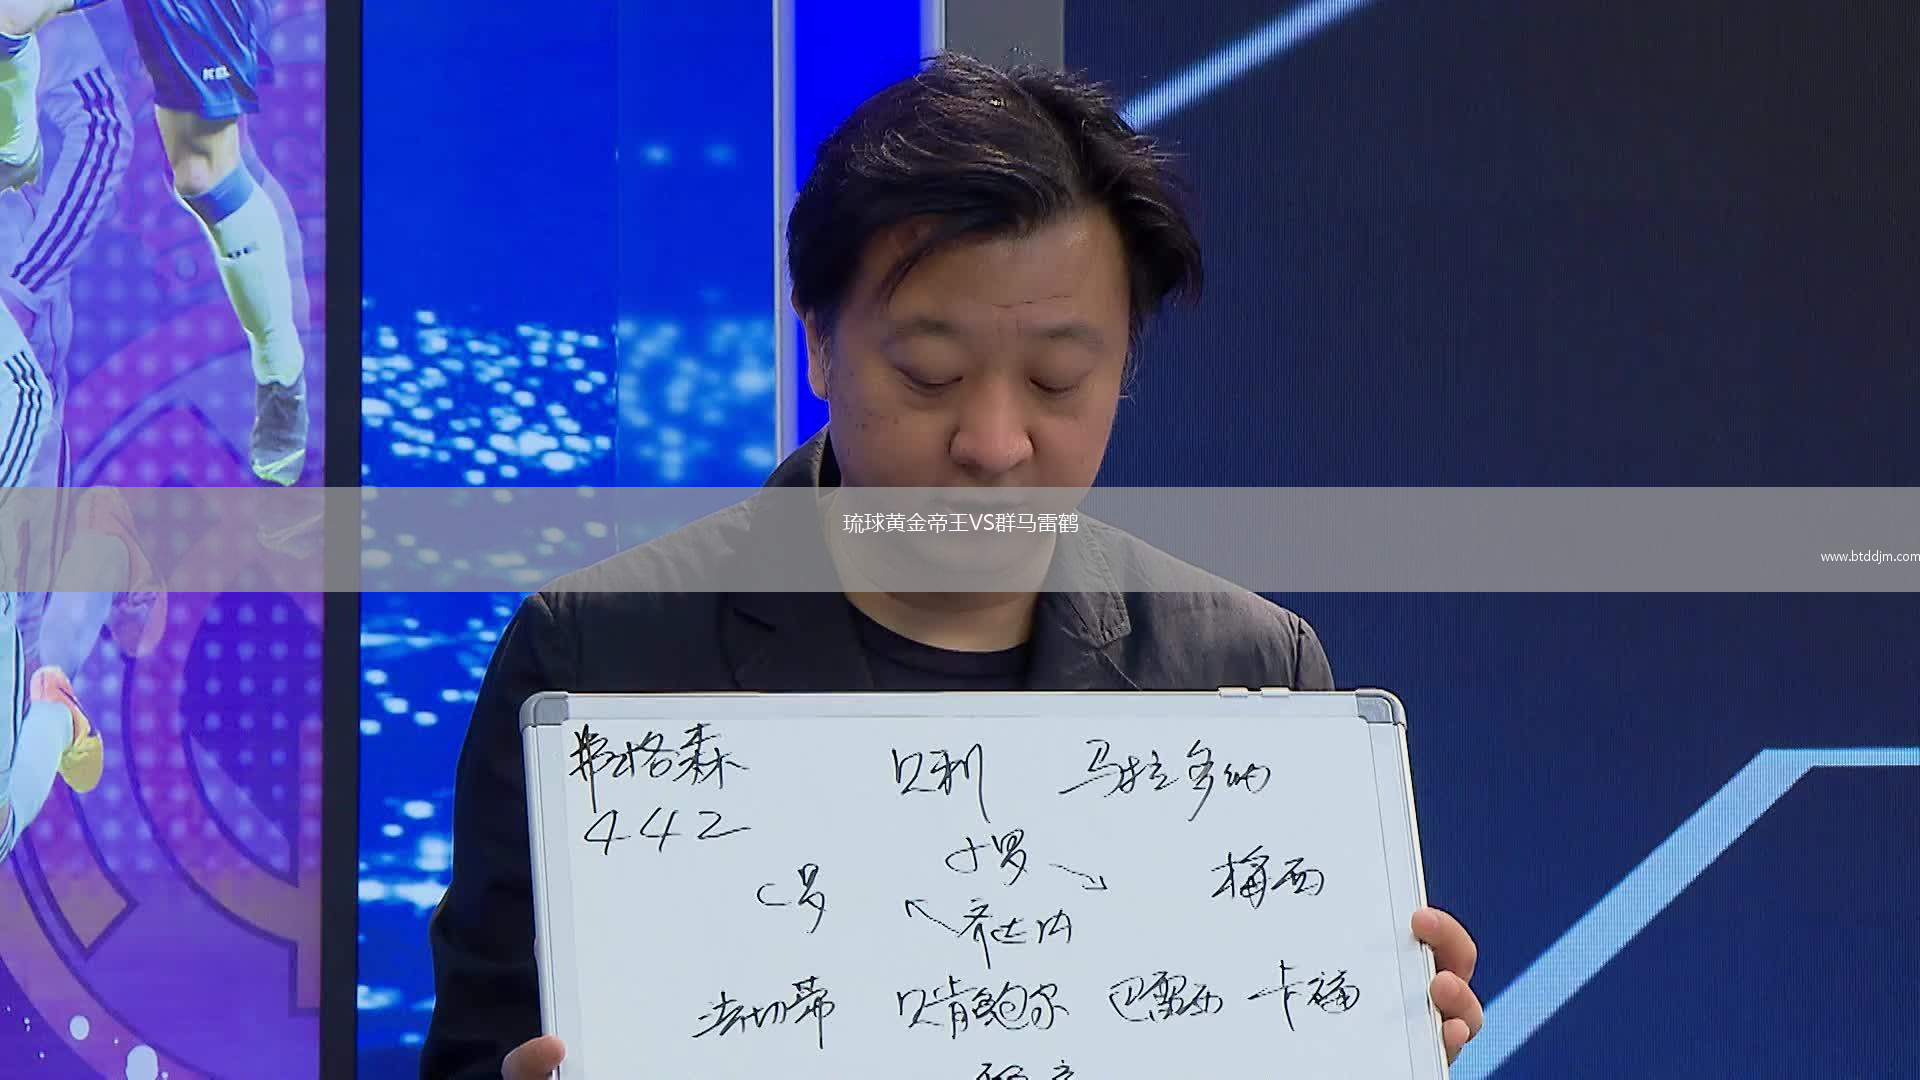 琉球黄金帝王VS群马雷鹤
www.btddjm.com
弗格森 贝利 马拉多纳
442
小罗
C罗 梅西
齐达内
法切蒂 贝肯鲍尔 巴雷西 卡福